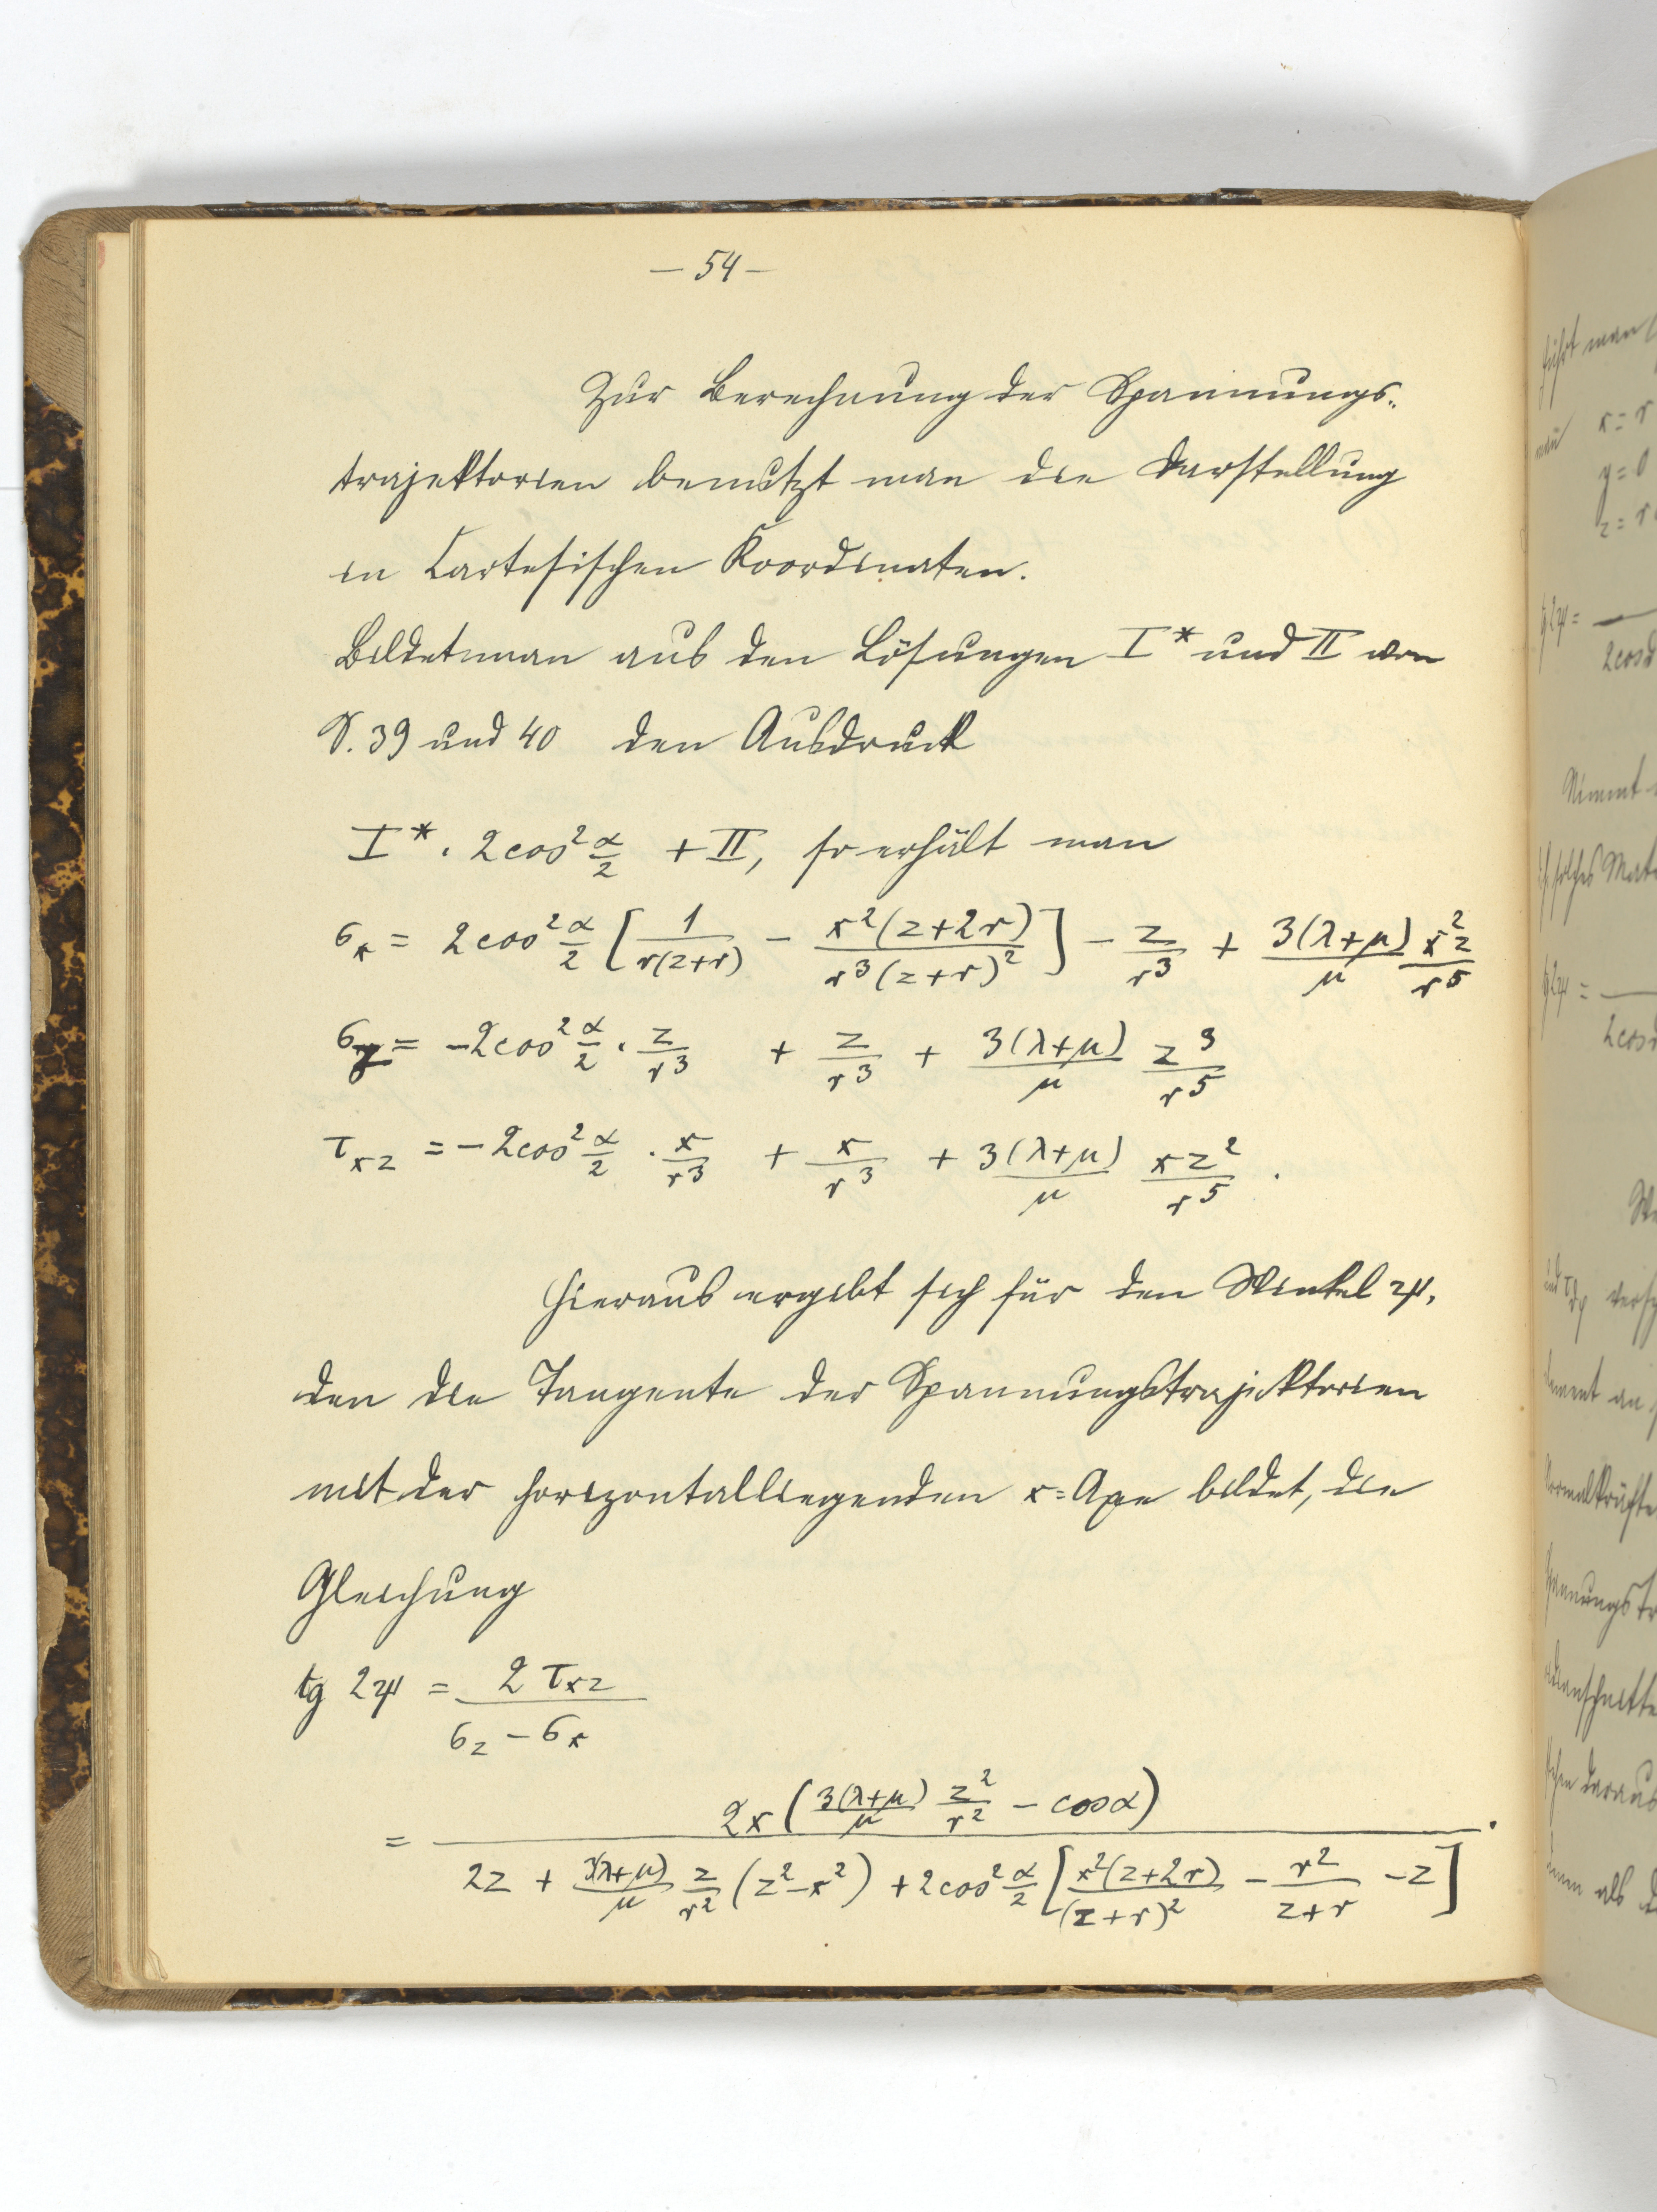 – 54 –
Zur Berechnung der Spannungs-
trajektorien benutzt man die Darstellung
in Cartesischen Koordinaten.
Bildet man aus den Lösungen I* und II von
S. 39 und 40 den Ausdruck
I* · 2cos² α/2 + II, so erhält man
σₓ = 2cos² α/2 [ 1/(r(z+r)) − x²(z+2r)/(r³(z+r)²) ] − z/r³ + 3(λ+μ)/μ x²z/r⁵
σ_z = −2cos² α/2 · z/r³ + z/r³ + 3(λ+μ)/μ z³/r⁵
τ_xz = −2cos² α/2 · x/r³ + x/r³ + 3(λ+μ)/μ xz²/r⁵ .
Hieraus ergibt sich für den Winkel ψ,
den die Tangente der Spannungstrajektorien
mit der horizontalliegenden x=Axe bildet, die
Gleichung
tg 2ψ = 2 τ_xz / (σ_z − σₓ)
= 2x ( 3(λ+μ)/μ z²/r² − cosα ) / ( 2z + 3(λ+μ)/μ z/r² (z²−x²) + 2cos² α/2 [ x²(z+2r)/(z+r)² − r²/(z+r) − z ] ) .
führt man
x = r
y = 0
z = r
tg 2ψ =
2cosα
Nimmt
solches Mate
tg 2ψ =
2cosα